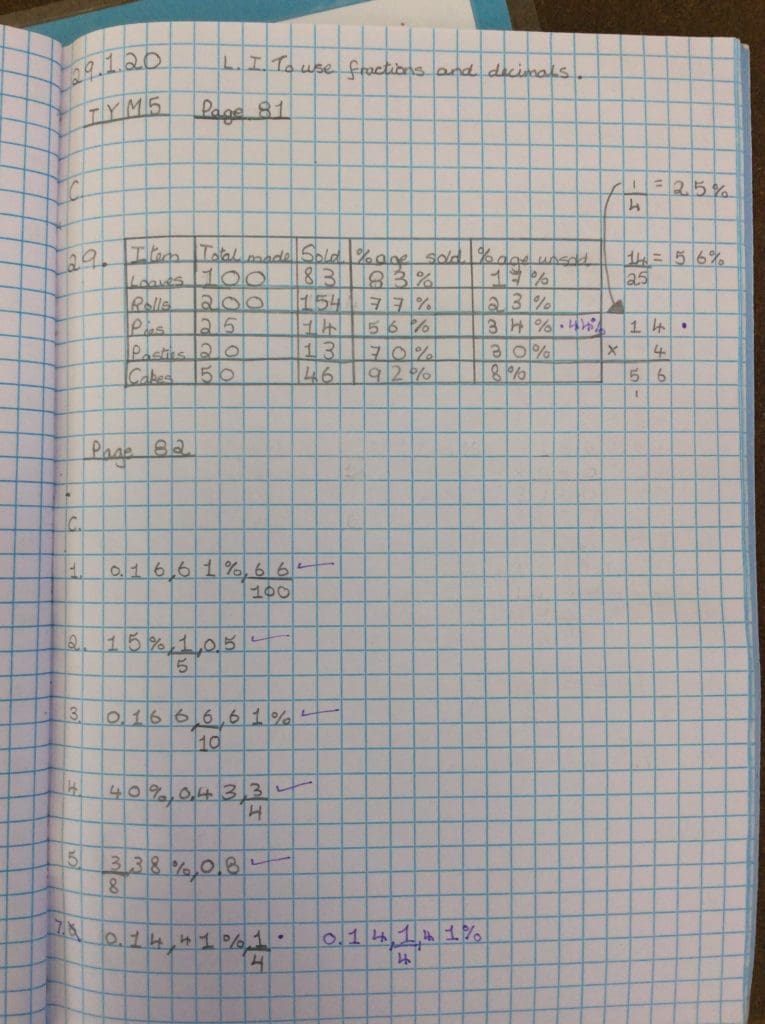 29.1.20 L.I. To use fractions and decimals.
TYM5 Page 81
C
1/4 = 25%
29. Item Total made Sold %age sold %age unsold 14/25 = 56%
Loaves 100 83 83% 17%
Rolls 200 154 77% 23%
Pies 25 14 56% 34% • 44% 14 •
Pasties 20 13 70% 30% x 4
Cakes 50 46 92% 8% 56
1
Page 82
C.
1. 0.16, 61%, 66/100 ✓
2. 15%, 1/5, 0.5 ✓
3. 0.166, 6/10, 61% ✓
4. 40%, 0.43, 3/4 ✓
5. 3/8, 38%, 0.8 ✓
7. 0.14, 41%, 1/4 • 0.14, 1/4, 41%